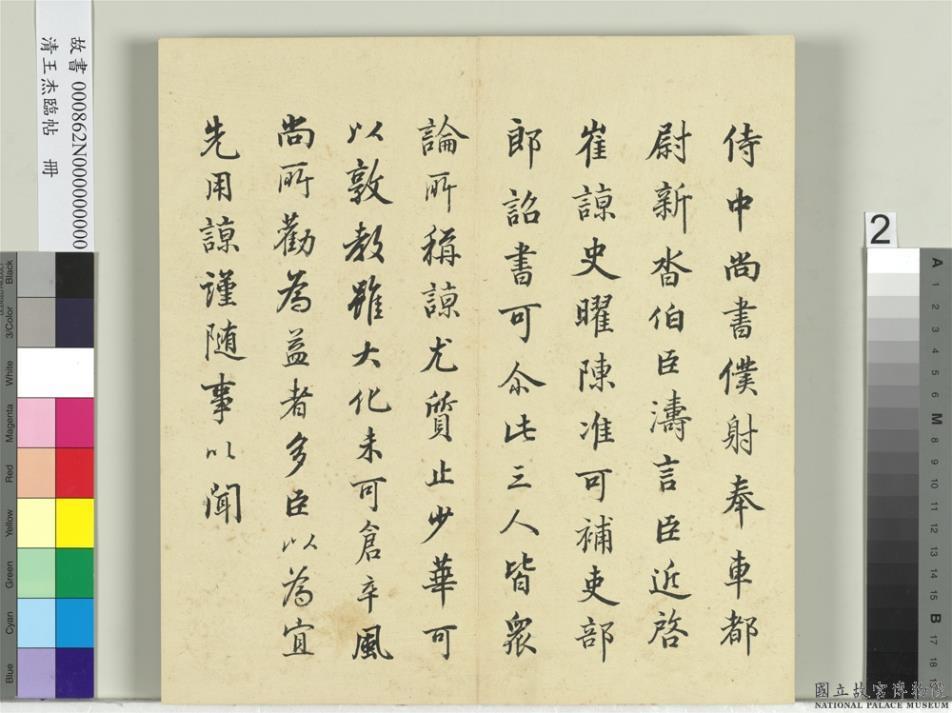 侍中尚書僕射奉車都
尉新沓伯臣濤言臣近啓
崔諒史曜陳准可補吏部
郎詔書可尒此三人皆衆
論所稱諒尤質止少華可
以敦教雖大化未可倉卒風
尚所勸為益者多臣以為宜
先用諒謹随事以聞
故書 000862N00000000
清王杰臨帖 冊
2
Black
3/Color
White
Magenta
Red
Yellow
Green
Cyan
Blue
A
1
2
3
4
5
6
M
8
9
10
11
12
13
14
15
B
17
18
國立故宮博物院
NATIONAL PALACE MUSEUM